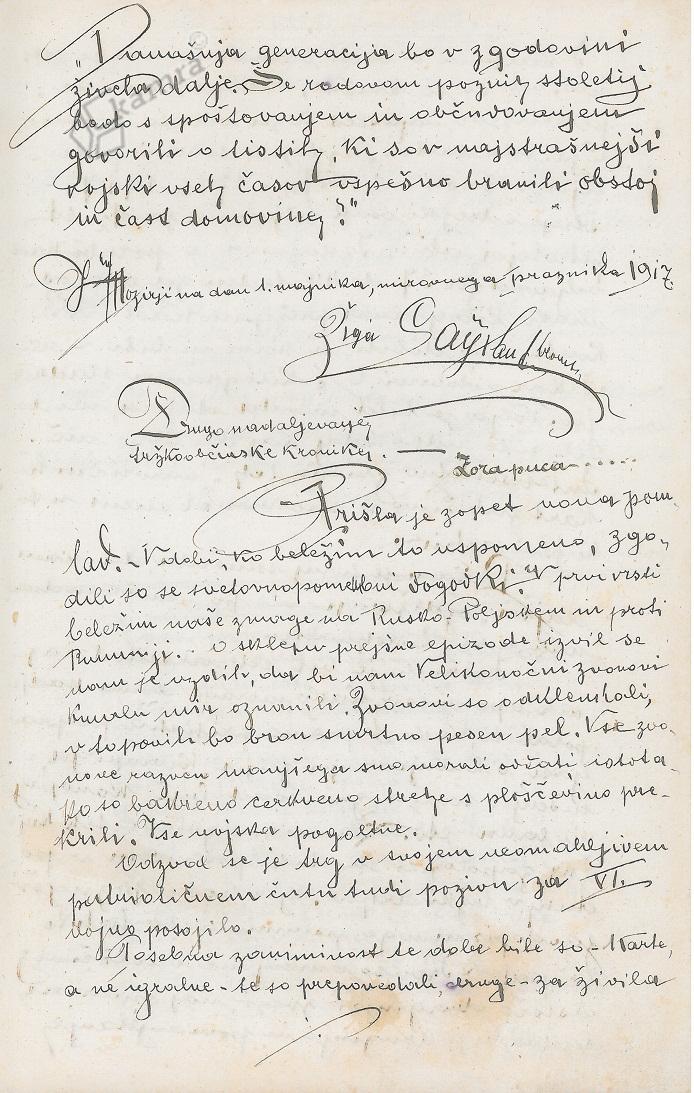 „Damašnja generacija bo v zgodovini
živela dalje. Še rodovom poznih stoletij
bodo s spoštovanjem in občudovanjem
govorili o listih, ki so v najstrašnejši
vojski vseh časov uspešno branili obstoj
in čast domovine!"
V Mozirji na dan 1. majnika, mirovnega praznika 1917.
Žiga
Drugo nadaljevanje
tržkoobčinske kronike. — Zora puca......
Prišla je zopet nova pom-
lad. - V dobi, ko beležim to uspomeno, zgo-
dili so se svetovnopomembni dogodki. V prvi vrsti
beležim naše zmage na Rusko-Poljskem in proti
Rumuniji. O sklepu prejšne epizode izvil se
nam je vzdih, da bi nam Velikonočni zvonovi
kmalu mir oznanili. Zvonovi so odklenkali,
v topovih bo bron smrtno pesen pel. Vse zvo-
nove razven manjšega smo morali oddati istota-
ko so bakreno cerkveno strehe s pločevino pre-
krili. Vse vojska pogoltne.
Odzval se je trg v svojem neomahljivem
patriotičnem čutu tudi pozivu za VI.
vojno posojilo.
Posebna zanimivost te dobe bile so - Karte,
a ne igralne - te so prepovedali, druge - za živila
kamra